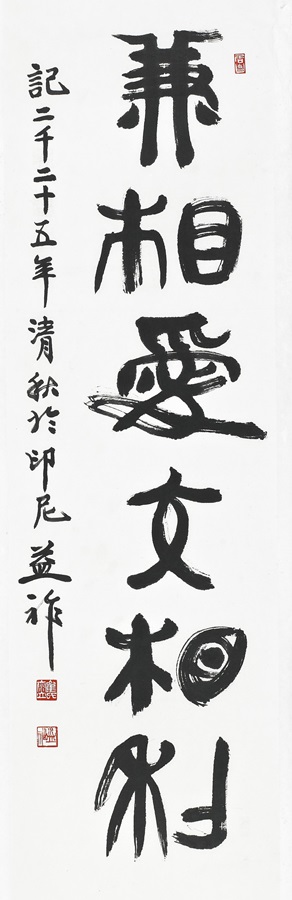 兼相愛交相利
記二千二十五年清秋於印尼益祚